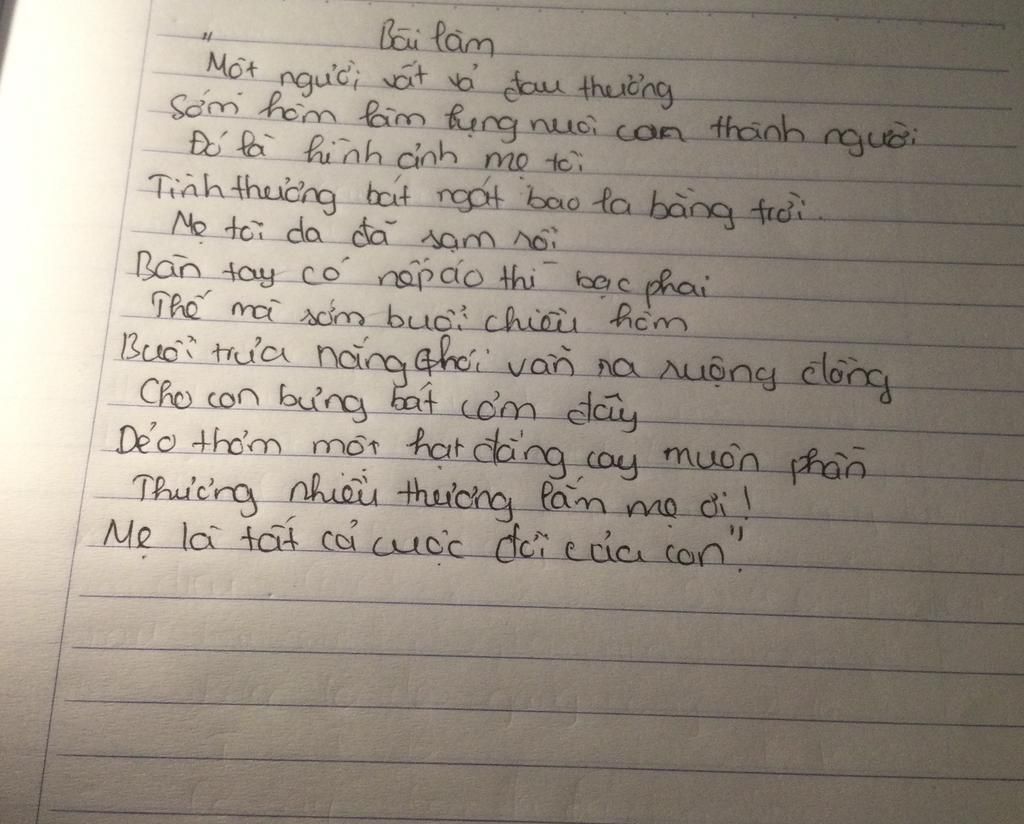 Bài làm
"Một người vất vả đau thương
Sớm hôm làm lụng nuôi con thành người
Đó là hình ảnh mẹ tôi
Tình thương bát ngát bao la bằng trời.
Mẹ tôi da đã sạm rồi
Bàn tay có nếp áo thì bạc phai
Thế mà sớm buổi chiều hôm
Buổi trưa nắng phơi vẫn ra ruộng đồng
Cho con bưng bát cơm đầy
Dẻo thơm một hạt đắng cay muôn phần
Thương nhiều thương lắm mẹ ơi!
Mẹ là tất cả cuộc đời của con".